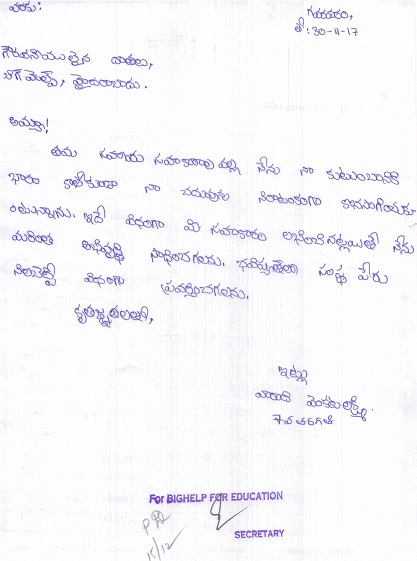 వరకు:
గణపవరం,
తే: 30-11-17
గౌరవనీయులైన దాతలు,
బిగ్ హెల్ప్, హైదరాబాదు.
అమ్మా!
తమ సహాయ సహకారాల వల్ల నేను నా కుటుంబానికి
భారం కాకుండా నా చదువును నిరాటంకంగా కొనసాగించుకు
టున్నాను. ఇదే విధంగా మీ సహకారం లభించినట్లయితే నేను
మరింత అభివృద్ధి సాధించగలను. భవిష్యత్తులో సంస్థ పేరు
నిలబెట్టే విధంగా ప్రవర్తించగలను.
కృతజ్ఞతలతో,
ఇట్లు
వెంకటలక్ష్మి.
7వ తరగతి
For BIGHELP FOR EDUCATION
SECRETARY
15/12